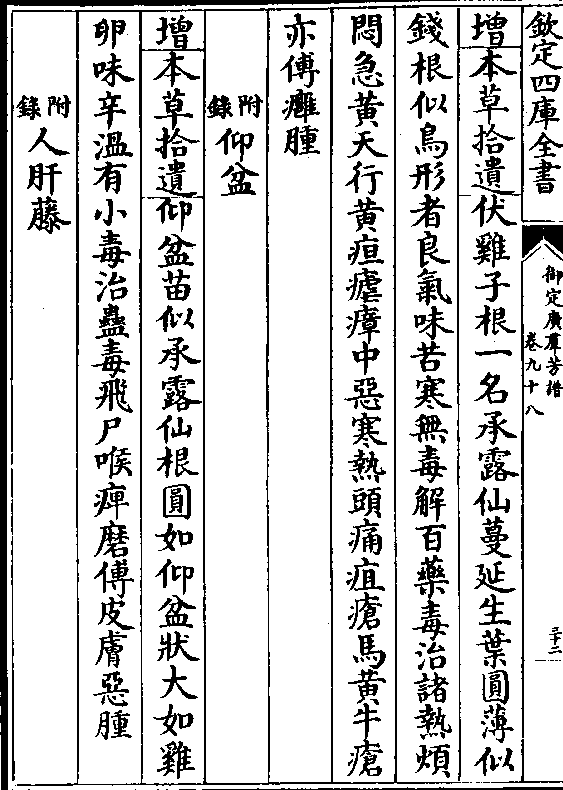 欽定四庫全書
御定廣羣芳譜
卷九十八
三十二
增本草拾遺伏雞子根一名承露仙蔓延生葉圓薄似
錢根似鳥形者良氣味苦寒無毒解百藥毒治諸熱煩
悶急黃天行黃疸瘧瘴中惡寒熱頭痛疽瘡馬黃牛瘡
亦傅癰腫
附錄仰盆
增本草拾遺仰盆苗似承露仙根圓如仰盆狀大如雞
卵味辛溫有小毒治蠱毒飛尸喉痺磨傅皮膚惡腫
附錄人肝藤